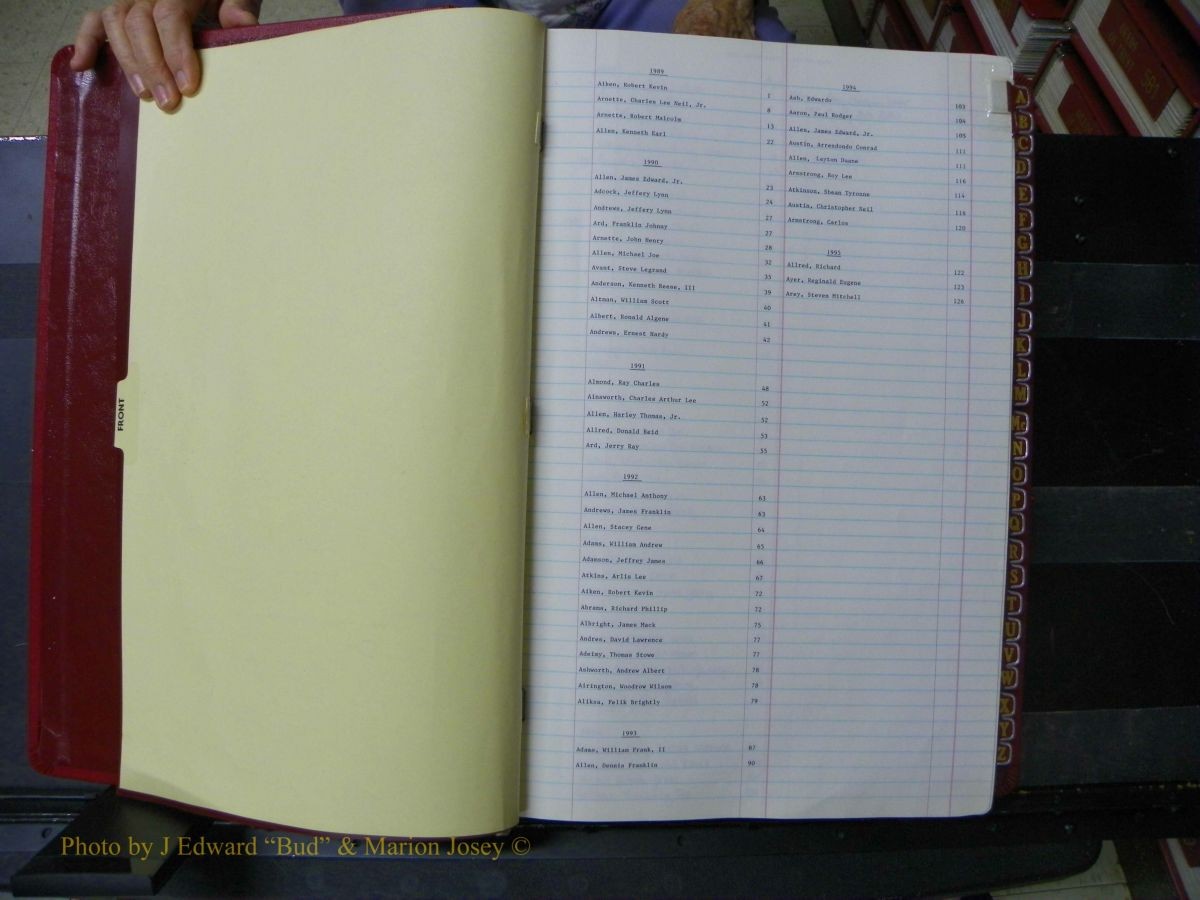 FRONT
1989
Aiken, Robert Kevin 1
Arnette, Charles Lee Neil, Jr. 8
Arnette, Robert Malcolm 13
Allen, Kenneth Earl 22
1990
Allen, James Edward, Jr. 23
Adcock, Jeffery Lynn 24
Andrews, Jeffery Lynn 27
Ard, Franklin Johnny 27
Arnette, John Henry 28
Allen, Michael Joe 32
Avant, Steve Legrand 35
Anderson, Kenneth Reese, III 39
Altman, William Scott 40
Albert, Ronald Algene 41
Andrews, Ernest Hardy 42
1991
Almond, Ray Charles 48
Ainsworth, Charles Arthur Lee 52
Allen, Harley Thomas, Jr. 52
Allred, Donald Reid 53
Ard, Jerry Ray 55
1992
Allen, Michael Anthony 63
Andrews, James Franklin 63
Allen, Stacey Gene 64
Adams, William Andrew 65
Adamson, Jeffrey James 66
Atkins, Arlis Lee 67
Aiken, Robert Kevin 72
Abrams, Richard Phillip 72
Albright, James Mack 75
Andres, David Lawrence 77
Adeimy, Thomas Stowe 77
Ashworth, Andrew Albert 78
Airington, Woodrow Wilson 78
Aliksa, Felik Brightly 79
1993
Adams, William Frank, II 87
Allen, Dennis Franklin 90
1994
Ash, Edwardo 103
Aaron, Paul Rodger 104
Allen, James Edward, Jr. 105
Austin, Arrendondo Conrad 111
Allen, Layton Duane 111
Armstrong, Roy Lee 116
Atkinson, Shean Tyronne 114
Austin, Christopher Neil 118
Armstrong, Carlos 120
1995
Allred, Richard 122
Ayer, Reginald Eugene 123
Arey, Steven Mitchell 126
A
B
C
D
E
F
G
H
I
J
K
L
M
Mc
N
O
P
Q
R
S
T
U
V
W
X
Y
Z
581
Photo by J Edward “Bud” & Marion Josey ©